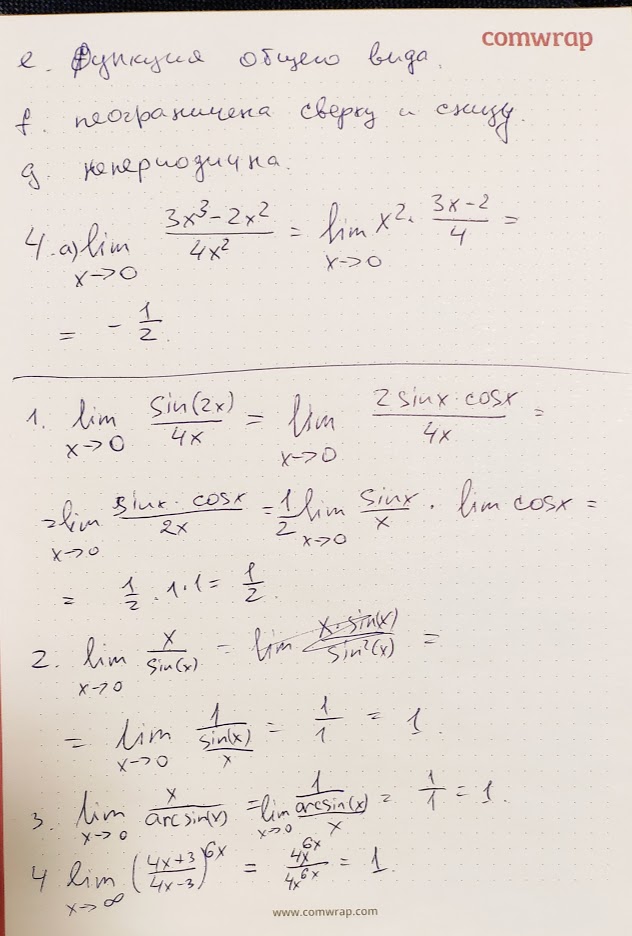 comwrap
e. Функция общего вида.
f. неограничена сверху и снизу.
g. непериодична.
4. a) lim x→0 (3x³-2x²)/(4x²) = lim x→0 x² · (3x-2)/4 =
= - 1/2.
1. lim x→0 sin(2x)/4x = lim x→0 (2 sinx · cosx)/4x =
= lim x→0 (sinx · cosx)/2x = 1/2 lim x→0 sinx/x · lim cosx =
= 1/2 · 1·1 = 1/2.
2. lim x→0 x/sin(x) = lim (x·sin(x))/(sin²(x)) =
= lim x→0 1/(sin(x)/x) = 1/1 = 1.
3. lim x→0 x/arcsin(x) = lim x→0 1/(arcsin(x)/x) = 1/1 = 1.
4 lim x→∞ ((4x+3)/(4x-3))^6x = 4x^6x/4x^6x = 1.
www.comwrap.com